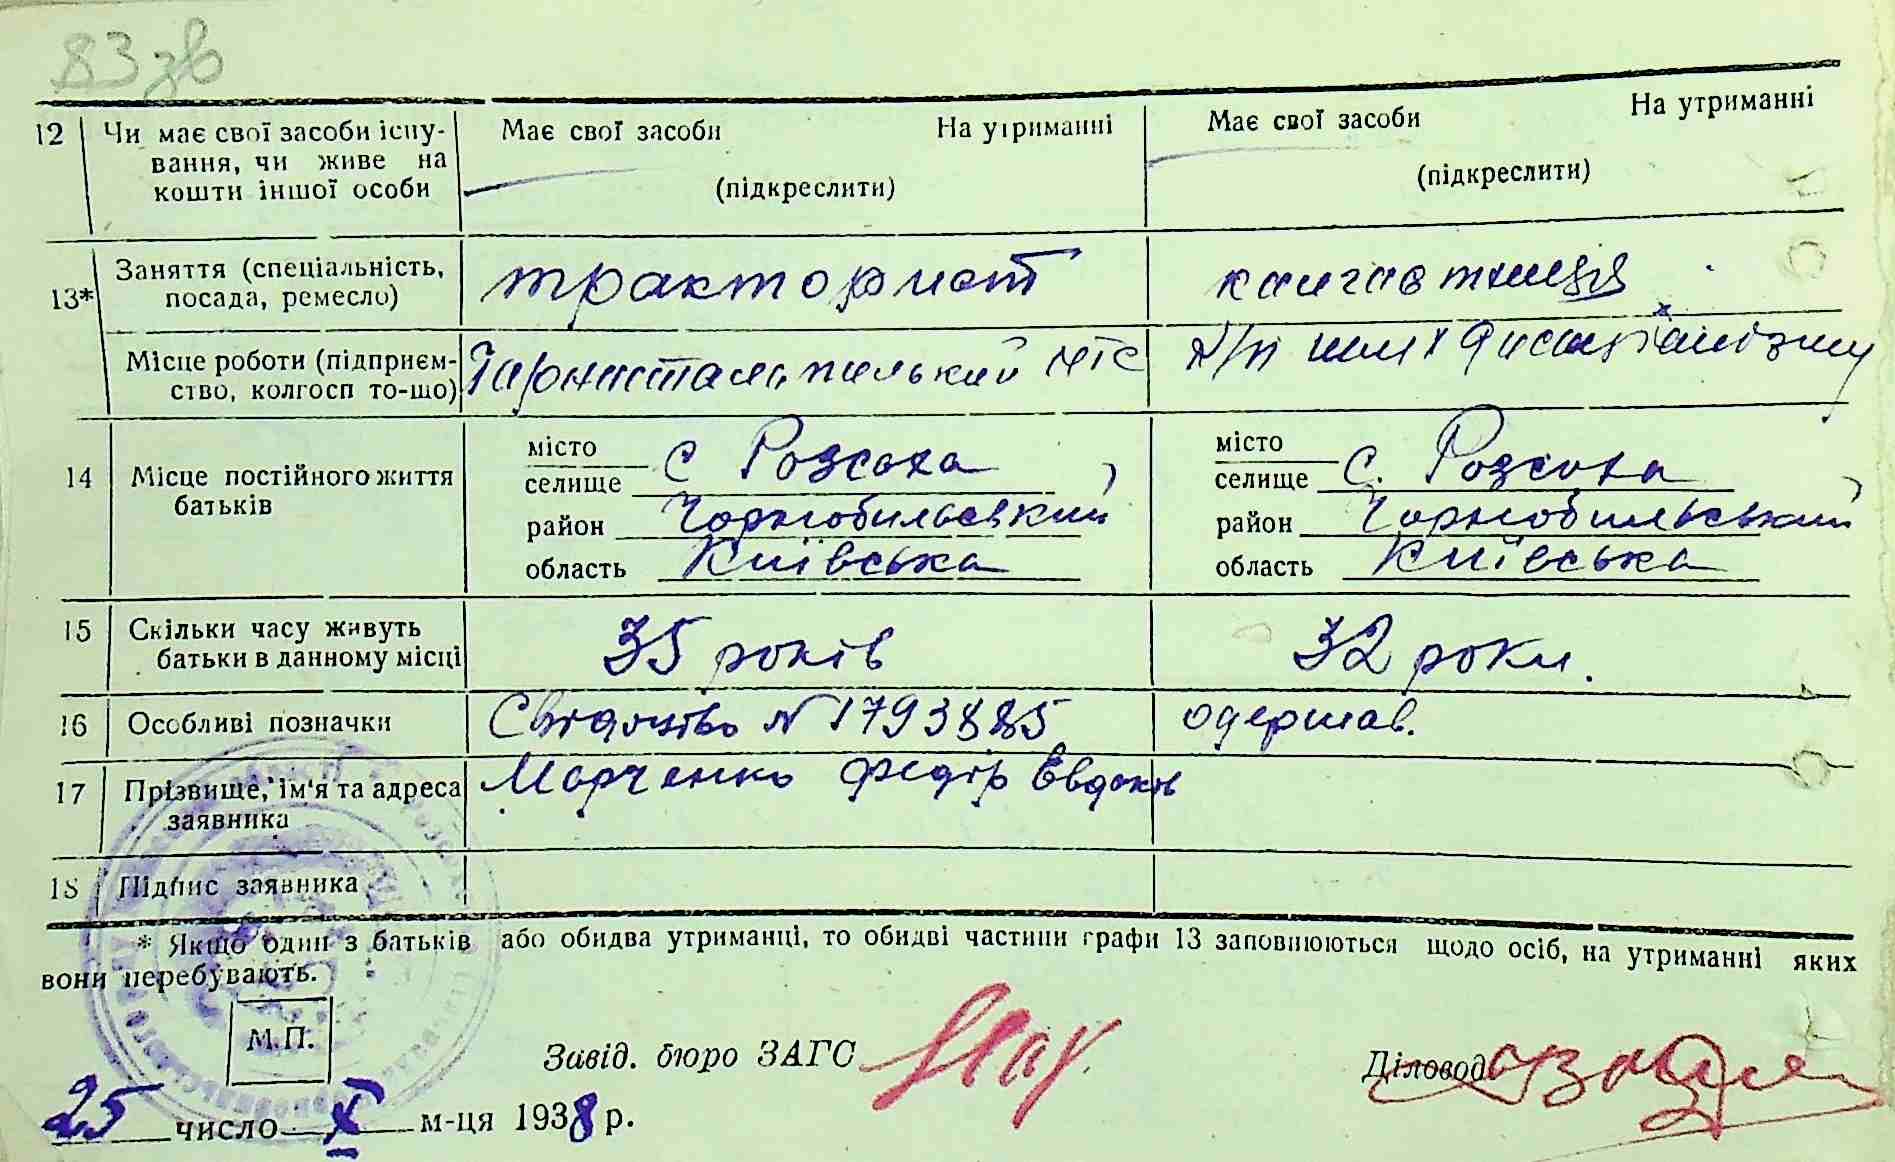 83 зв
12 Чи має свої засоби існу-
вання, чи живе на
кошти іншої особи
Має свої засоби На утриманні
(підкреслити)
Має свої засоби На утриманні
(підкреслити)
13* Заняття (спеціальність,
посада, ремесло)
тракторист
колгоспниця
Місце роботи (підприєм-
ство, колгосп то-що)
МТС
шлях до соціалізму
14 Місце постійного життя
батьків
місто
селище с Розсоха
район Чорнобильський
область Київська
місто
селище с. Розсоха
район Чорнобильський
область Київська
15 Скільки часу живуть
батьки в данному місці
35 років
32 роки.
16 Особливі позначки
Свидоцтво N 1793885 одержав.
17 Прізвище, ім'я та адреса
заявника
Марченко Федір Евдоків
18 Підпис заявника
* Якщо один з батьків або обидва утриманці, то обидві частини графи 13 заповнюються щодо осіб, на утриманні яких
вони перебувають.
М.П.
Завід. бюро ЗАГС
Діловод
25 число X м-ця 1938 р.